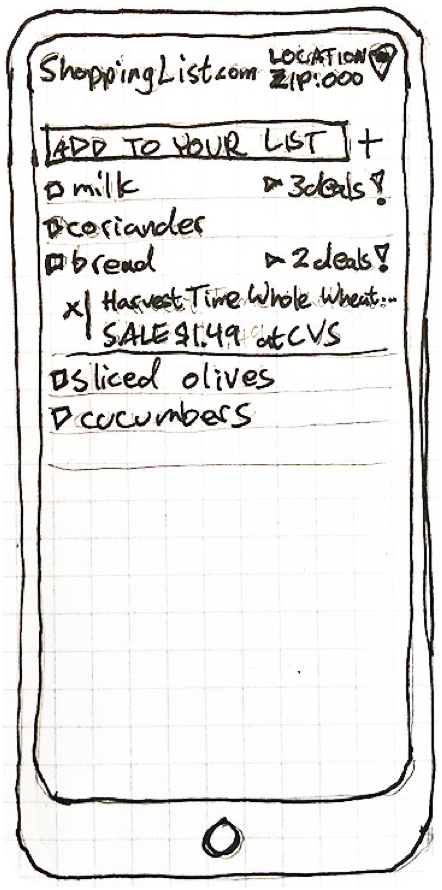 ShoppingList.com LOCATION
ZIP:000
ADD TO YOUR LIST +
milk 3 deals!
coriander
bread 2 deals!
x Harvest Time Whole Wheat...
SALE $1.49 at CVS
sliced olives
cucumbers